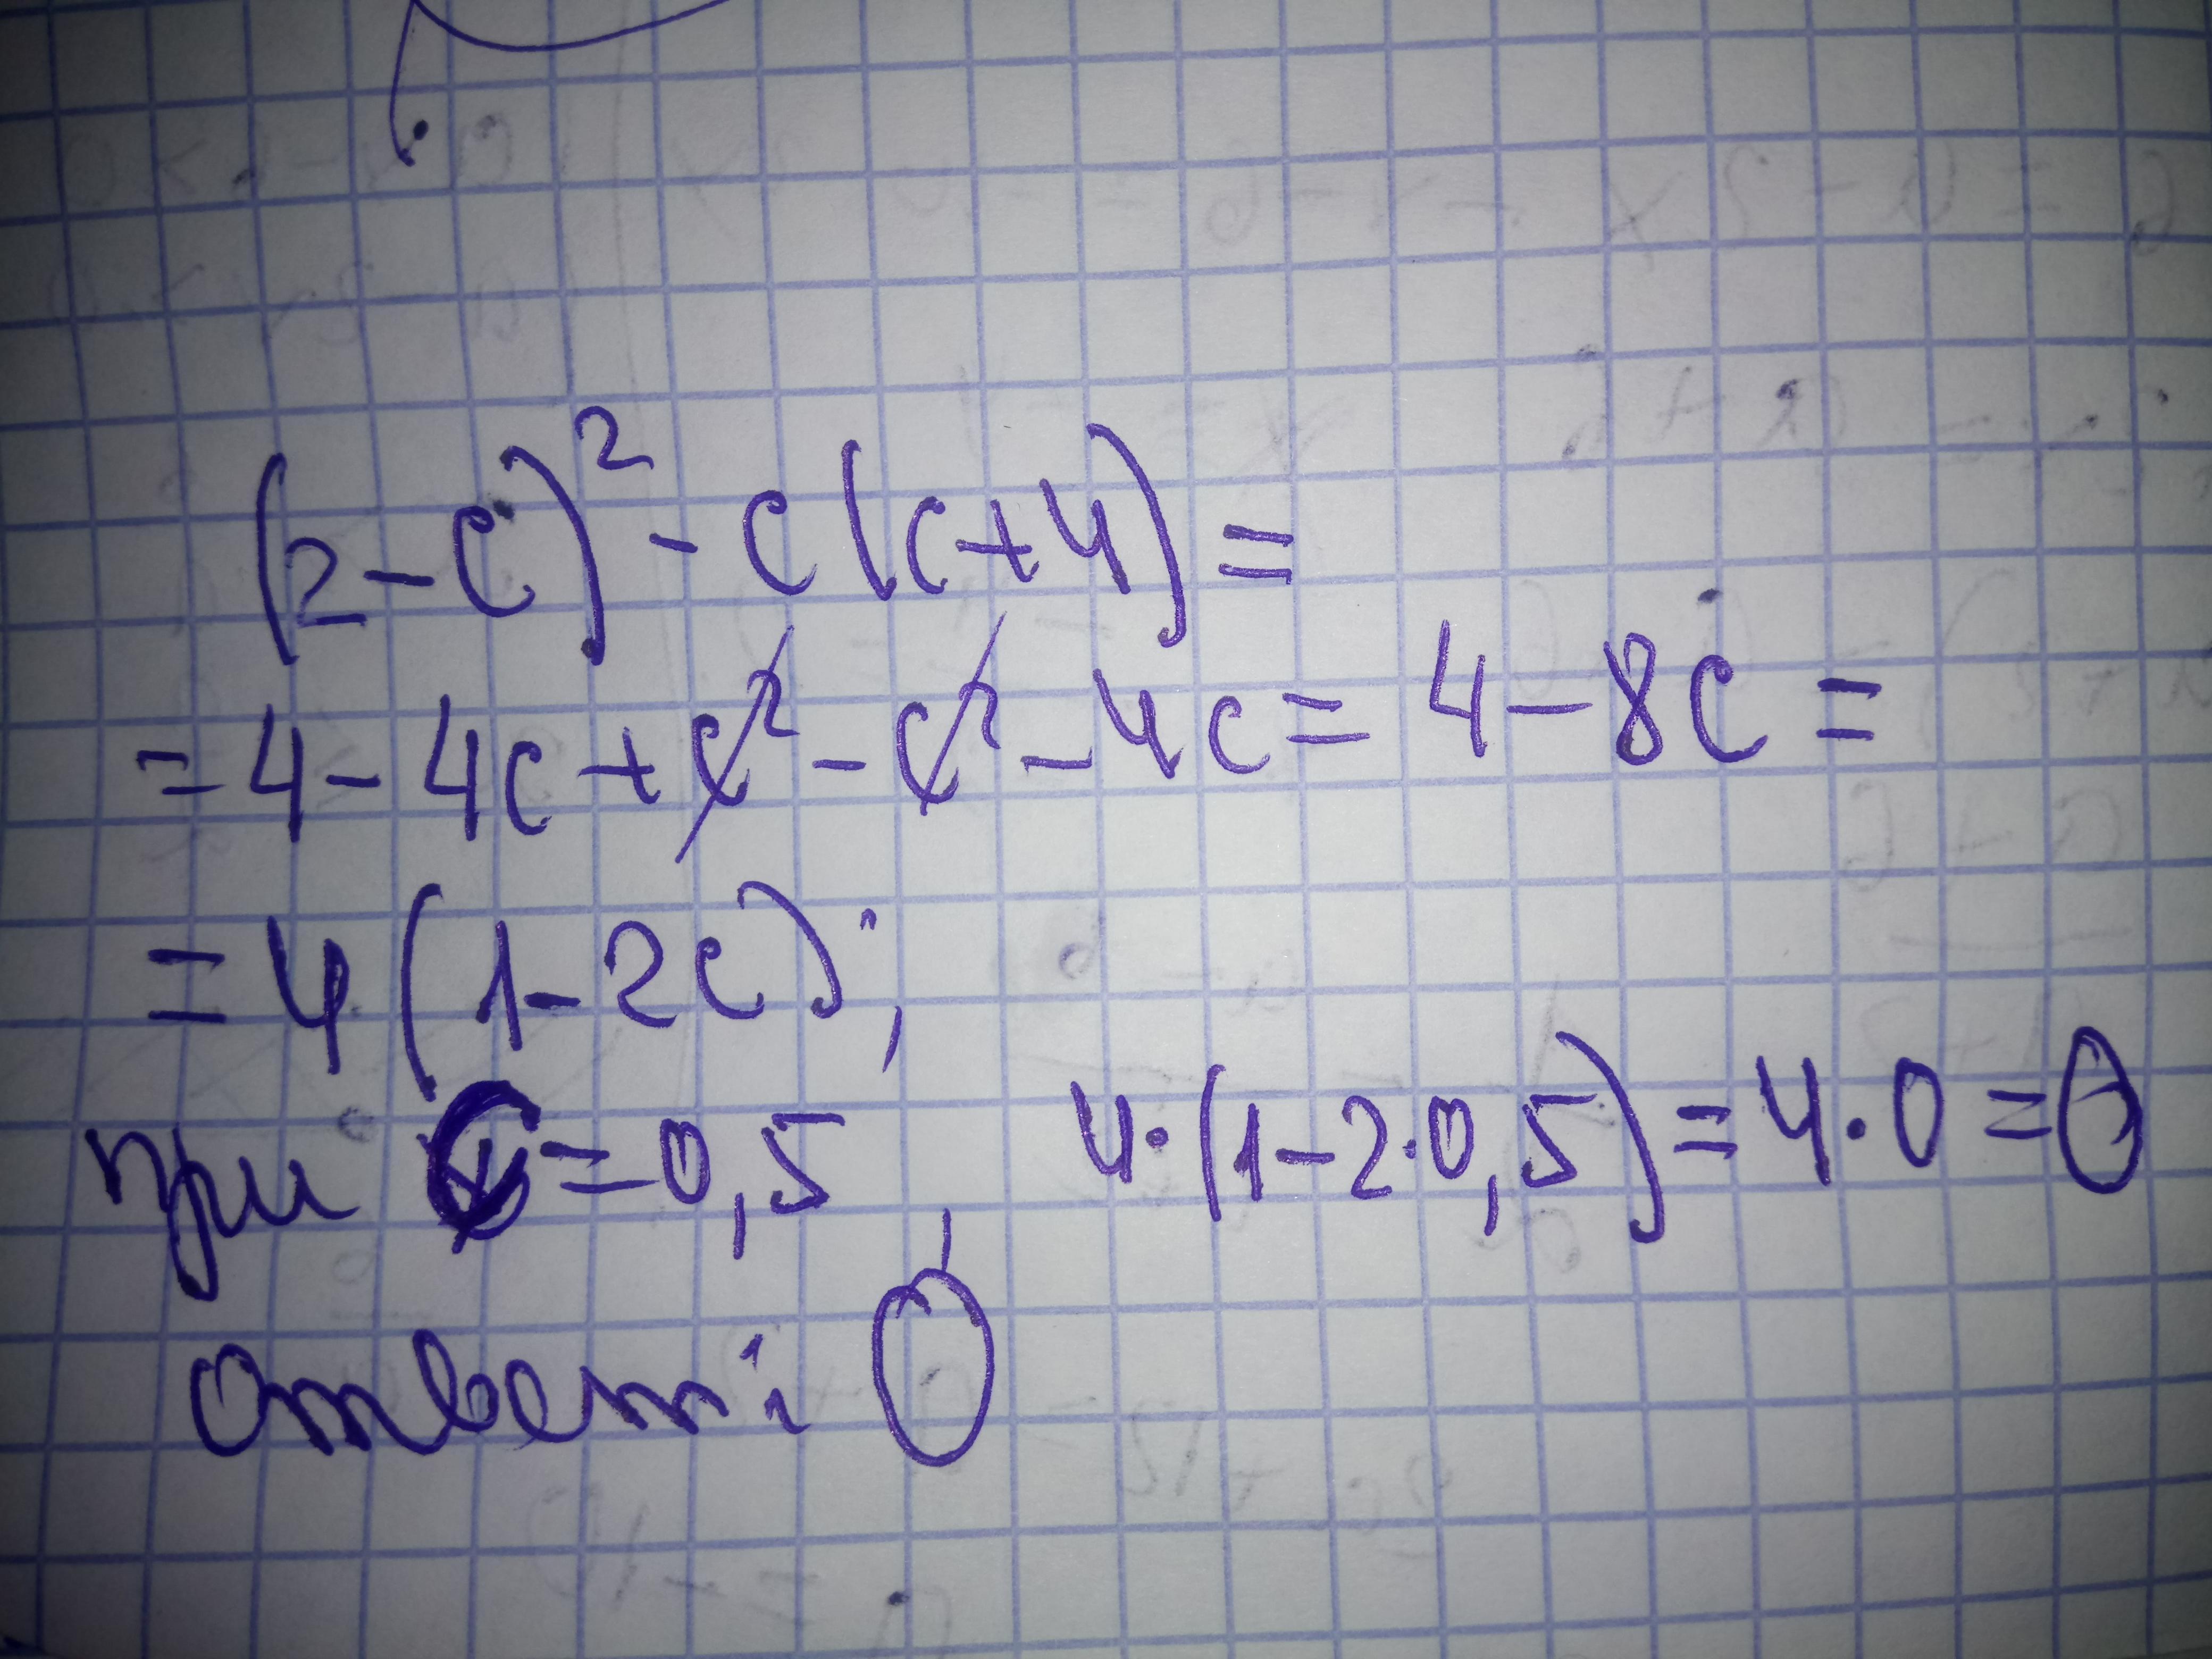 (2-c)² - c(c+4) =
= 4 - 4c + c² - c² - 4c = 4 - 8c =
= 4(1-2c);
при c = 0,5, 4·(1-2·0,5) = 4·0 = 0
ответ: 0